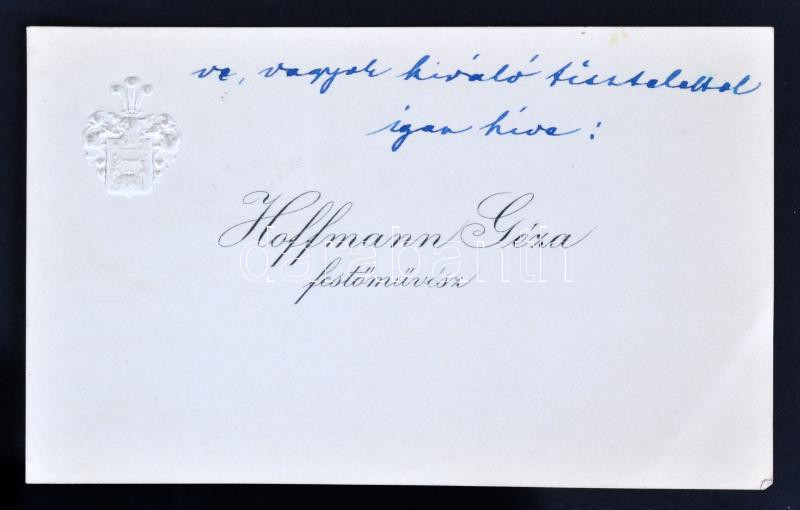 ve, vagyok kiváló tisztelettel
igaz híve:
Hoffmann Géza
festőművész
darabanth